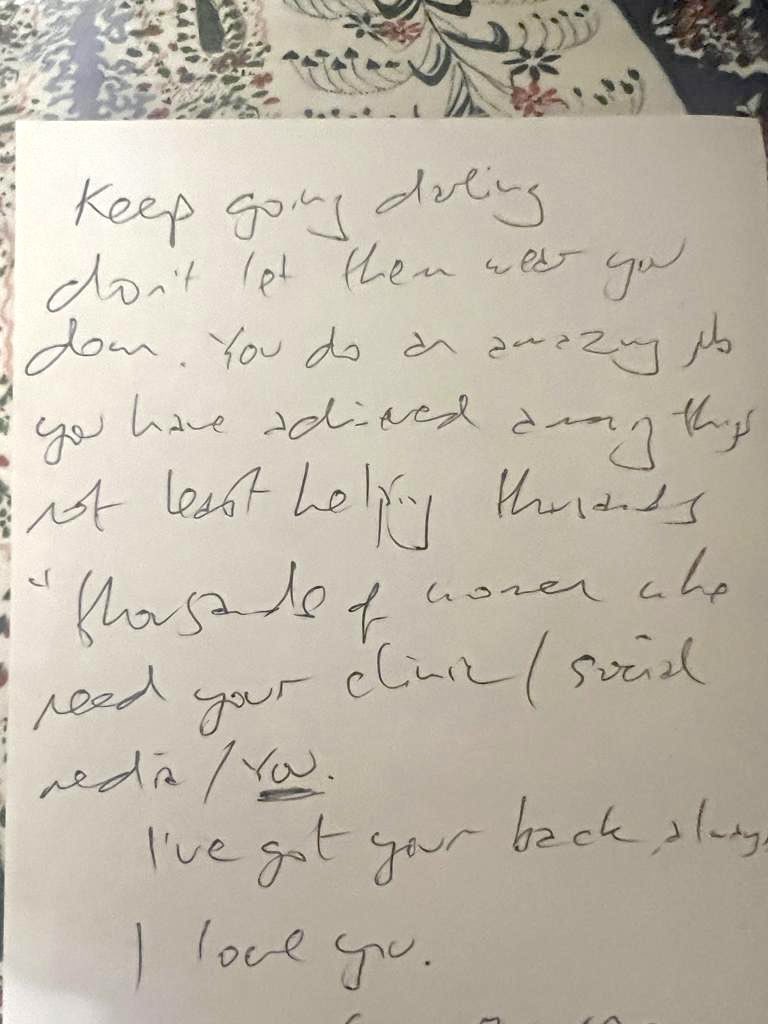 Keep going darling
don't let them wear you
down. You do an amazing job
you have achieved amazing things
not least helping thousands
+ thousands of women who
need your clinic/social
media/You.
I've got your back, always
I love you.